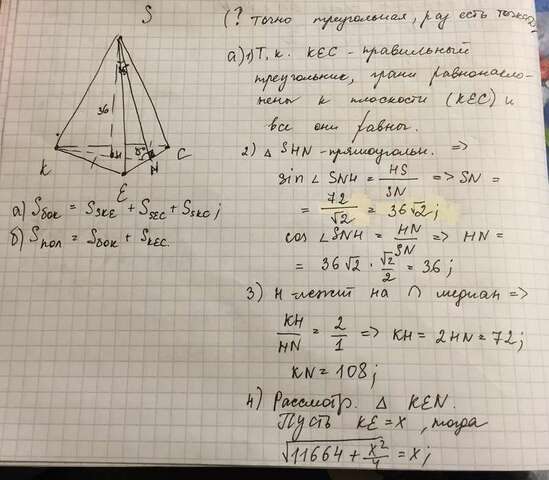 S
36
45°
K
H
45°
N
C
E
а) Sбок = SSKE + SSEC + SSKC;
б) Sпол = Sбок + SKEC.
(? Точно треугольная, раз есть
а) 1) Т.к. KEC - правильный
треугольник, грани равнонакло-
нены к плоскости (KEC) и
все они равны.
2) △ SHN - прямоугольн. =>
sin ∠ SNH = HS/SN => SN =
= 72/√2 = 36√2;
cos ∠SNH = HN/SN => HN =
= 36√2 · √2/2 = 36;
3) H - лежит на ∩ медиан =>
KH/HN = 2/1 => KH = 2HN = 72;
KN = 108;
4) Рассмотр. △ KEN.
Пусть KE = x, тогда
√11664 + x²/4 = x;